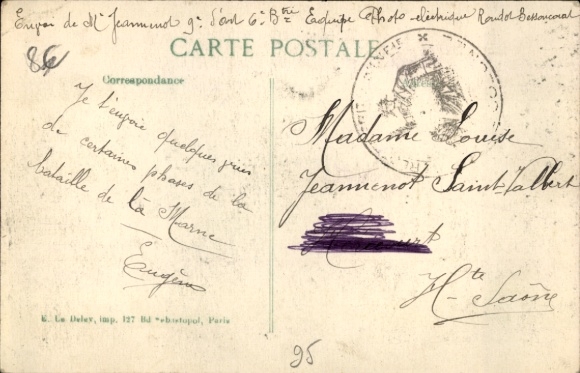 Envoi de Mr Jeannenot 9e d'art 6e Bie Equipe Photo électrique Redoute Bessoncourt
CARTE POSTALE
86
Correspondance
Je t'envoie quelques vues
de certaines phases de la
bataille de la Marne
Eugène
Madame Louise
Jeannenot Saint-Valbert
Hte Saône
E. Le Deley, imp. 127 Bd Sébastopol, Paris
95